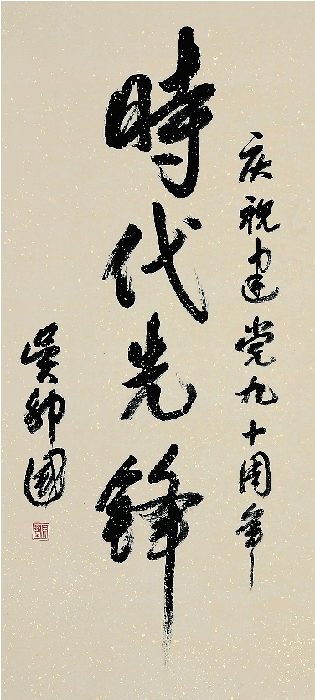 庆祝建党九十周年
時代先鋒
吳邦國